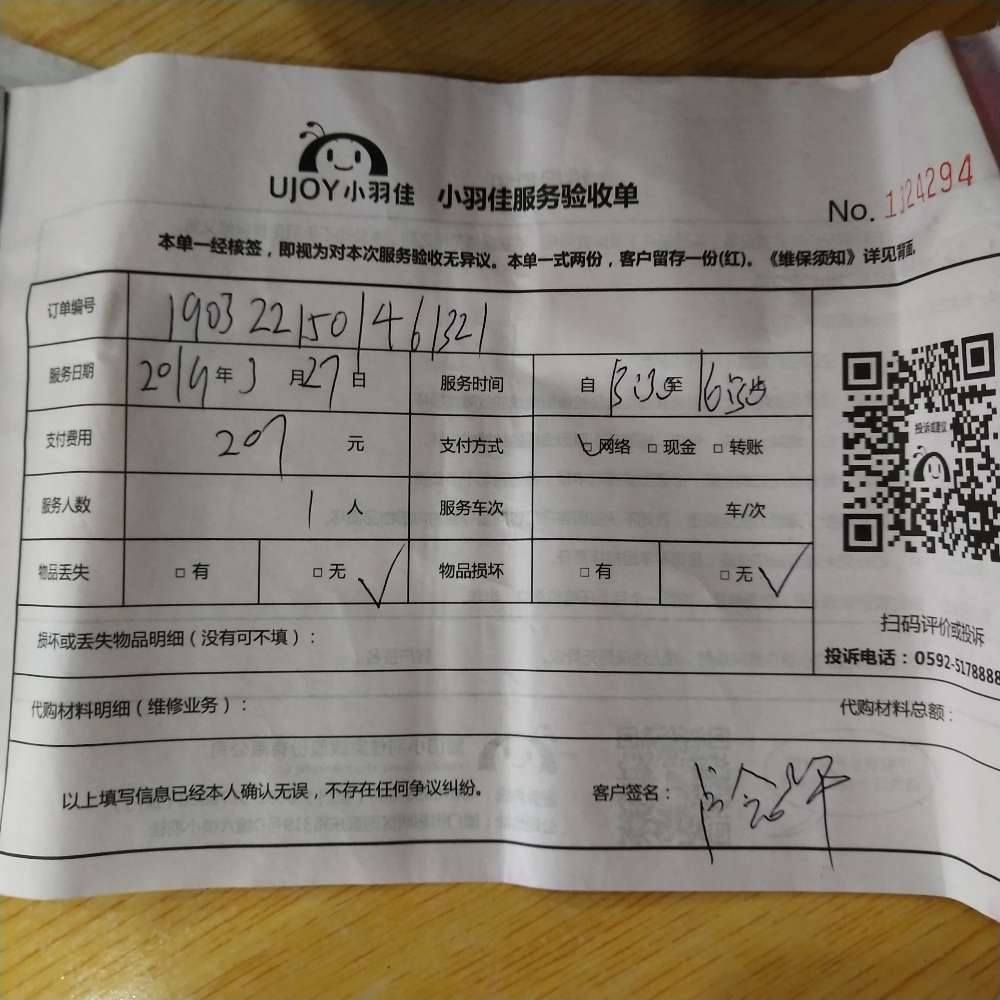 UJOY小羽佳 小羽佳服务验收单
No. 1124294
本单一经核签，即视为对本次服务验收无异议。本单一式两份，客户留存一份(红)。《维保须知》详见背面。
订单编号 1903221501461321
服务日期 2019年3月27日 服务时间 自 至
支付费用 207 元 支付方式 □网络 □现金 □转账
服务人数 1 人 服务车次 车/次
物品丢失 □有 □无 ✓ 物品损坏 □有 □无 ✓
投诉或建议
损坏或丢失物品明细（没有可不填）：
扫码评价或投诉
投诉电话：0592-5178888
代购材料明细（维修业务）： 代购材料总额：
以上填写信息已经本人确认无误，不存在任何争议纠纷。 客户签名：